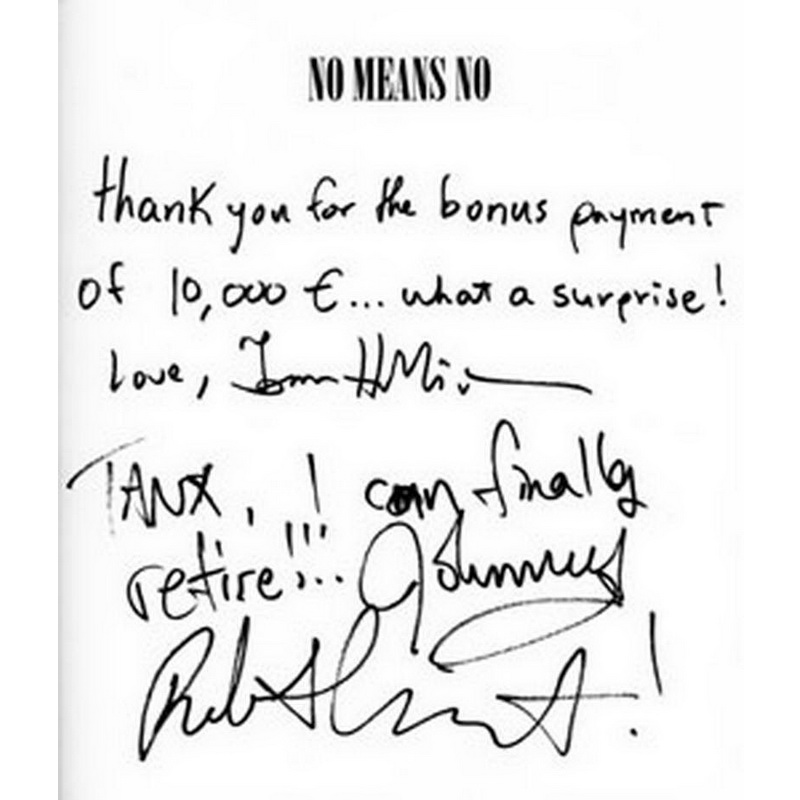 NO MEANS NO
thank you for the bonus payment
of 10,000 €... what a surprise!
love, Tom Holliston
TANX, I can finally
retire!!!... Johnny
Rob Wright!